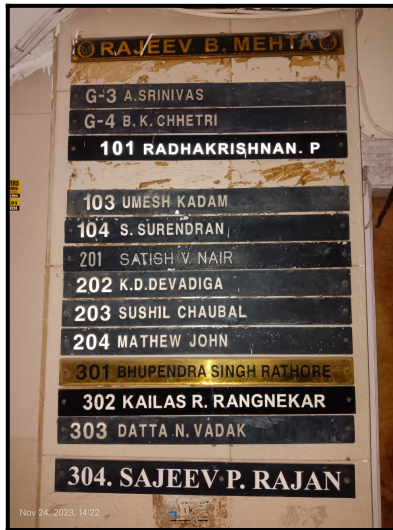 RAJEEV B. MEHTA
G-3 A.SRINIVAS
G-4 B.K.CHHETRI
101 RADHAKRISHNAN. P
103 UMESH KADAM
104 S. SURENDRAN
201 SATISH V. NAIR
202 K.D.DEVADIGA
203 SUSHIL CHAUBAL
204 MATHEW JOHN
301 BHUPENDRA SINGH RATHORE
302 KAILAS R. RANGNEKAR
303 DATTA N. VADAK
304. SAJEEV P. RAJAN
Nov 24, 2023, 14:22